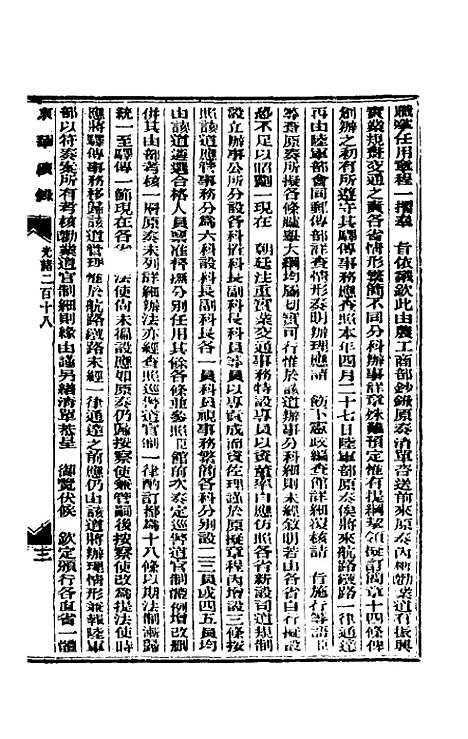 職掌任用章程一摺奉 旨依議欽此由農工商部鈔錄原奏淸單咨送前來原奏內稱勸業道有振興
實業規畫交通之責各省情形繁簡不同分科辦事詳章殊難預定惟有提綱挈領擬訂簡章十四條俾
創辦之初有所遵守其驛傳事務應查照本年四月二十七日陸軍部原奏俟將來航路鐵路一律通達
再由陸軍部會同郵傳部詳查情形奏明辦理應請 飭下憲政編查館詳細覆核請 旨施行等語臣
等查原奏所擬各條臚舉大綱均屬切實可行惟於該道辦事分科細則未經敘明若由各省自行擬設
恐不足以昭劃一現在 朝廷注重實業交通事務特設專員以資董率自應仿照各省新設司道規制
設立辦事公所分設各科省科長副科長科員等員以專責成而資佐理謹於原擬章程內增設三條按
照該道應辦事分爲六科每科科長副科長各一員科員視事務繁簡各科分別設二三員或四五員均
由該道遴選合格人員稟准督撫分別任用其餘各條並多照臣館前次奏定巡警道官制體例增改刪
併其由部考核一層原奏未列詳細辦法亦經查照巡警道官制一律酌訂都爲十八條以期法制漸歸
統一至驛傳一節現在各省 法使尚未徧設應如原奏仍歸按察使兼管嗣後按察使改爲提法使時
應將驛傳事務移歸該道管理惟於航路鐵路未經一律通達之前應仍由該道將辦理情形兼報陸軍
部以符奏案所有考核勸業道官制細則緣由謹另繕淸單恭呈 御覽伏候 欽定頒行各直省一體
東華續錄 光緖二百十八